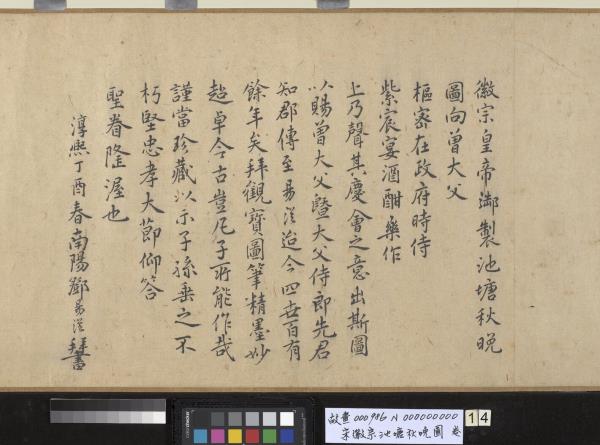 徽宗皇帝御製池塘秋晚
圖向曾大父
樞密在政府時侍
紫宸宴酒酣樂作
上乃聲其慶會之意出斯圖
以賜曾大父暨大父侍郎先君
知郡傳至易從迨今四世百有
餘年矣拜觀寶圖筆精墨妙
超卓今古豈凡子所能作哉
謹當珍藏以示子孫垂之不
朽堅忠孝大節仰答
聖眷隆渥也
淳熙丁酉春南陽鄧易從拜書
故畫 000986 N 000000000
宋徽宗池塘秋晚圖 卷
14